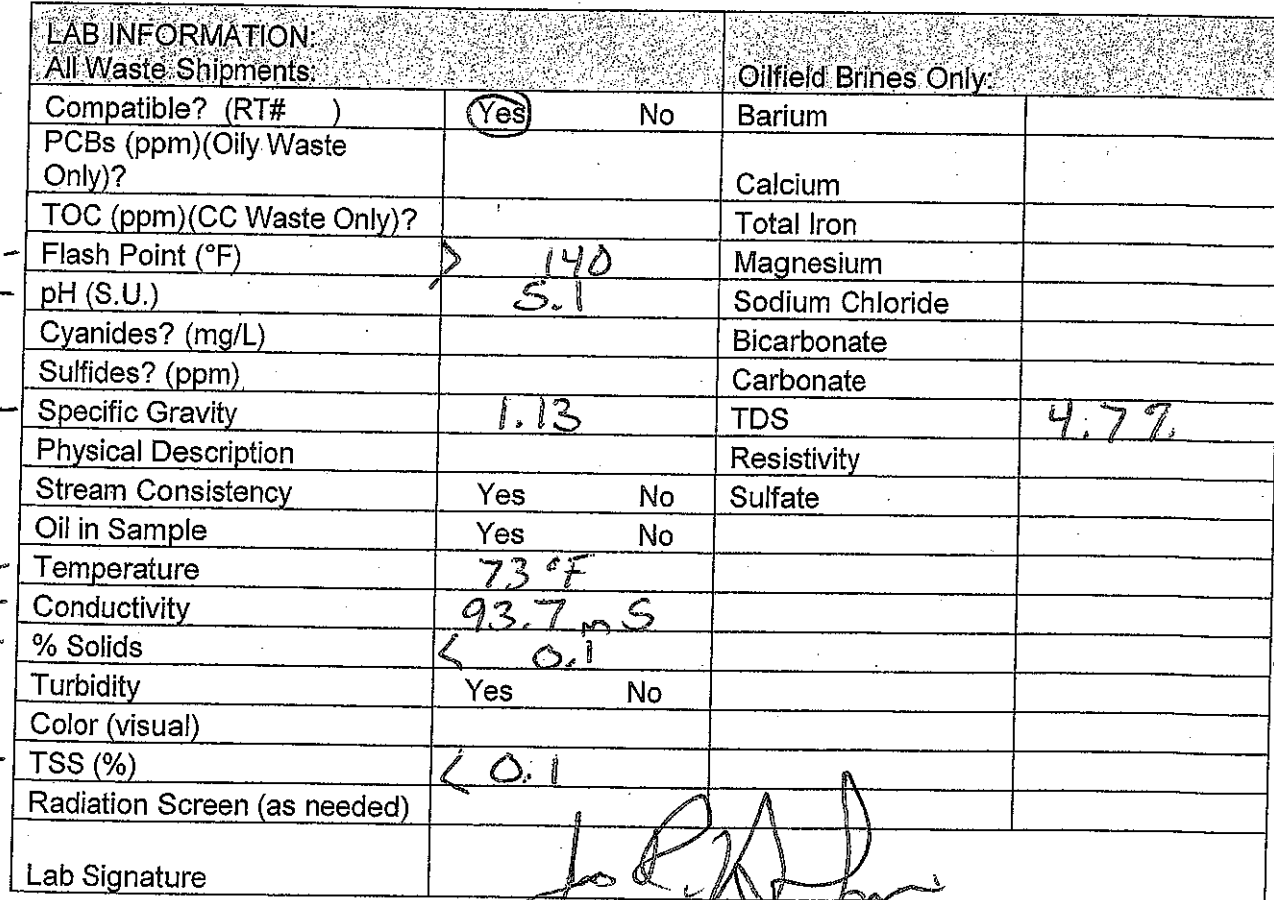 LAB INFORMATION:
All Waste Shipments:
Oilfield Brines Only:
Compatible? (RT# ) Yes No Barium
PCBs (ppm)(Oily Waste
Only)? Calcium
TOC (ppm)(CC Waste Only)? Total Iron
Flash Point (°F) > 140 Magnesium
pH (S.U.) 5.1 Sodium Chloride
Cyanides? (mg/L) Bicarbonate
Sulfides? (ppm) Carbonate
Specific Gravity 1.13 TDS 4.7%
Physical Description Resistivity
Stream Consistency Yes No Sulfate
Oil in Sample Yes No
Temperature 73 °F
Conductivity 93.7 mS
% Solids < 0.1
Turbidity Yes No
Color (visual)
TSS (%) < 0.1
Radiation Screen (as needed)
Lab Signature